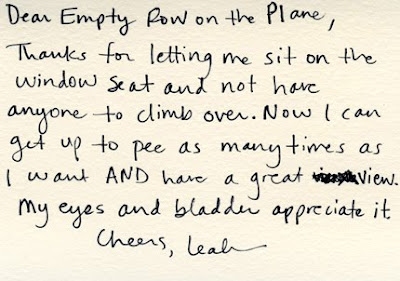 Dear Empty Row on the Plane,
Thanks for letting me sit on the
window seat and not have
anyone to climb over. Now I can
get up to pee as many times as
I want AND have a great view.
My eyes and bladder appreciate it.
Cheers, Leah